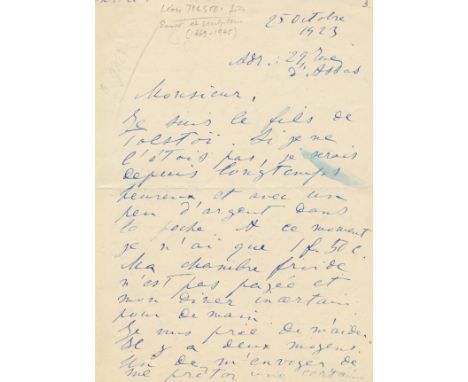 3
Léon TOLSTOI fils
(1869-1945)
25 Octobre
1923
Adr.: 29, rue
d'Assas
Monsieur,
Je suis le fils de
Tolstoï. Si je ne
l'étais pas, je serais
depuis longtemps
heureux et avec un
peu d'argent dans
la poche. A ce moment
je n'ai que 1 f. 50 c.
Ma chambre froide
n'est pas payée et
mon diner incertain
pour de main.
Je vous prie de m'aider.
Il y a deux moyens.
Un de m'envoyer de
me prêter une certaine